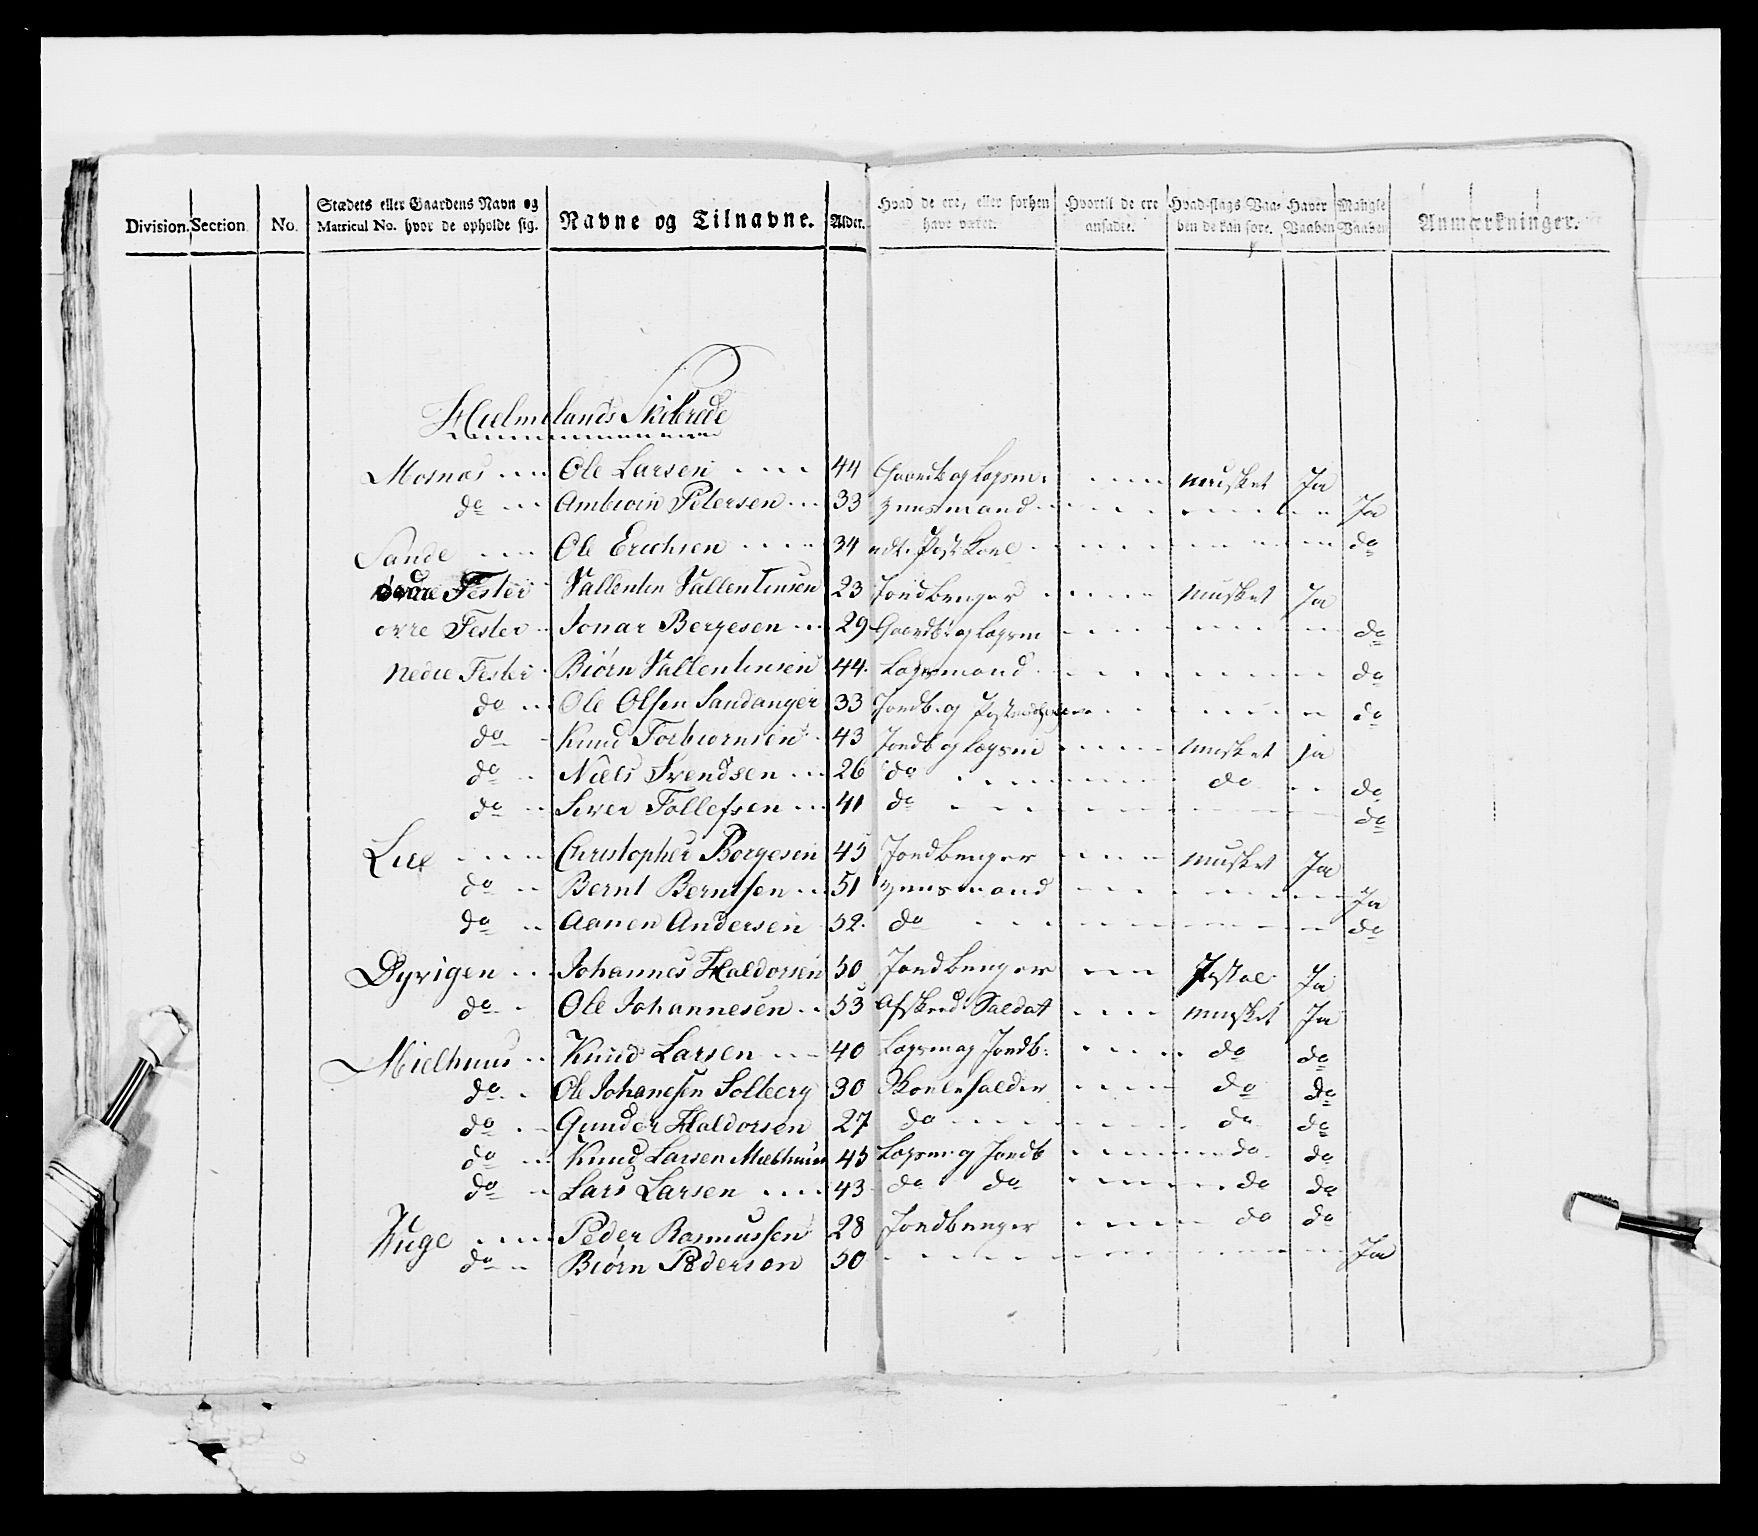 Division. Section No. Stædets eller Gaardens Navn og Matricul No. hvor de opholde sig. Navne og Tilnavne. Alder. Hvad de ere, eller forhen have været. Hvortil de ere ansadte. Hvad slags Vaaben de kan føre. Haver Vaaben Mangle Vaaben Anmærkninger.
Hielmelands Skibrede
Mosnæs Ole Larsen 44 Gaardb og Logsm: musket Ja
do Ambroin Petersen 33 Huusmand Ja
Sande Ole Erichsen 34 do
Fester Vallentin Vallentinsen 23 Jordbruger musket Ja
øvre Fester Jonar Bergesen 29 Gaardb og Logsm do
Nedre Fester Biørn Vallentinsen 44 Logsmand do
do Ole Olsen Sandanger 33 Jordb. og do
do Knud Torbiørnsen 43 Jordb og Logsm musket ja
do Niels Svendsen 26 do do do
do Siver Tollefsen 41 do do
Lie Christopher Børgesen 45 Jordbruger musket Ja
do Bernt Berntsen 51 Huusmand Ja
do Aanen Andersen 52 do do
Dyrigen Johannes Haldorsen 50 Jordbruger Pistol Ja
do Ole Johannesen 53 Afskeed Saldat musket Ja
Mielhuus Knud Larsen 40 Logsm og Jordb: do do
do Ole Johanesen Solberg 30 Skoeleholder do do
do Gunder Haldorsen 27 do do do
do Knud Larsen Mielhuus 45 Logsm og Jordb do do
do Lars Larsen 43 do do do do
Huge Peder Rasmussen 28 Jordbruger do do
do Biørn Pederson 50 Ja